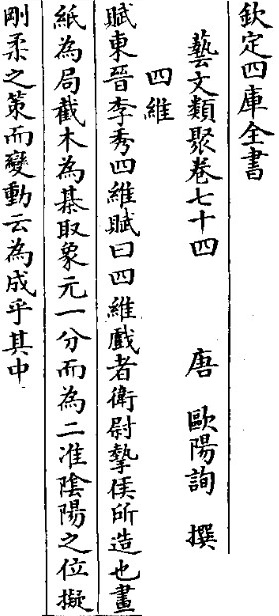 欽定四庫全書
藝文類聚卷七十四
唐 歐陽詢 撰
四維
賦東晉李秀四維賦曰四維戲者衛尉摯侯所造也畫
紙為局截木為棊取象元一分而為二准陰陽之位擬
剛柔之策而變動云為成乎其中